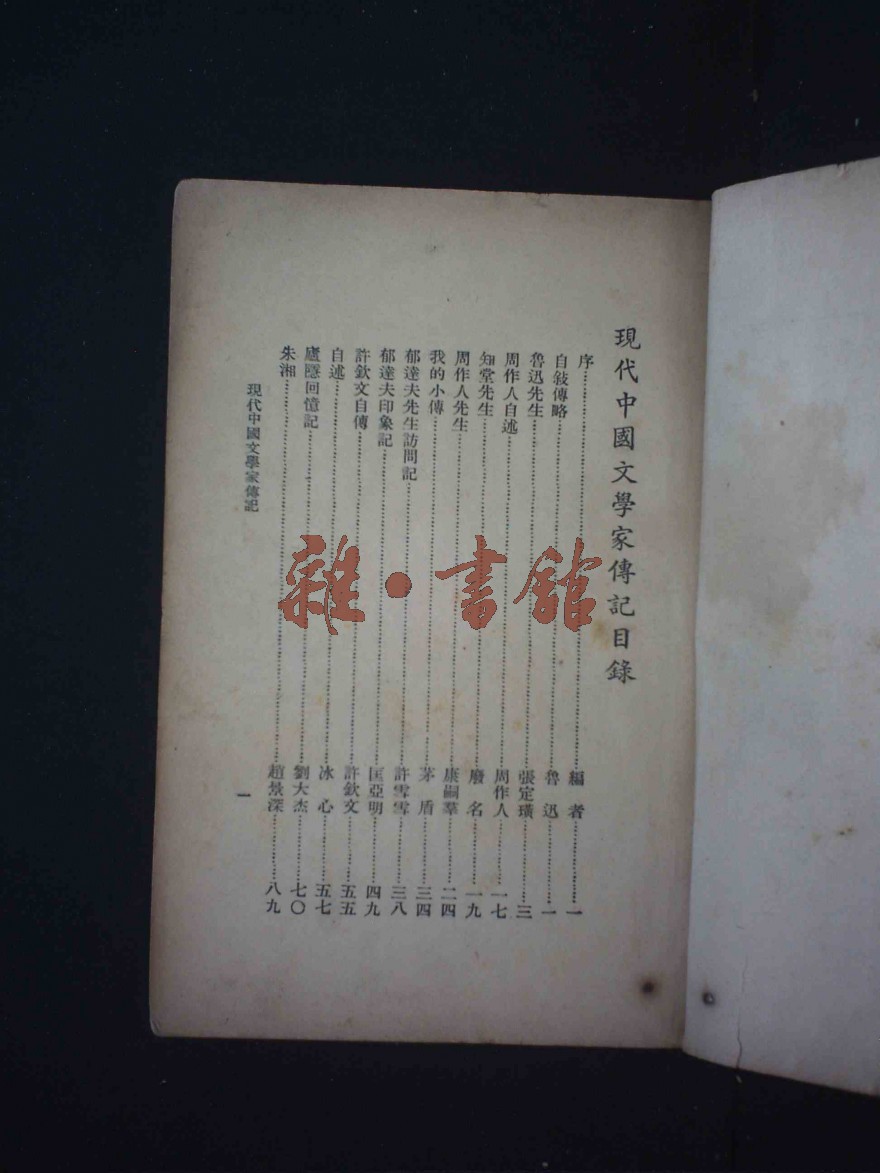 現代中國文學家傳記目錄
序……編者……一
自敍傳略……魯迅……一
魯迅先生……張定璜……三
周作人自述……周作人……一七
知堂先生……廢名……一九
周作人先生……康嗣羣……二四
我的小傳……茅盾……三四
郁達夫先生訪問記……許雪雪……三八
郁達夫印象記……匡亞明……四九
許欽文自傳……許欽文……五五
自述……冰心……五七
廬隱回憶記……劉大杰……七〇
朱湘……趙景深……八九
現代中國文學家傳記
一
雜·書館